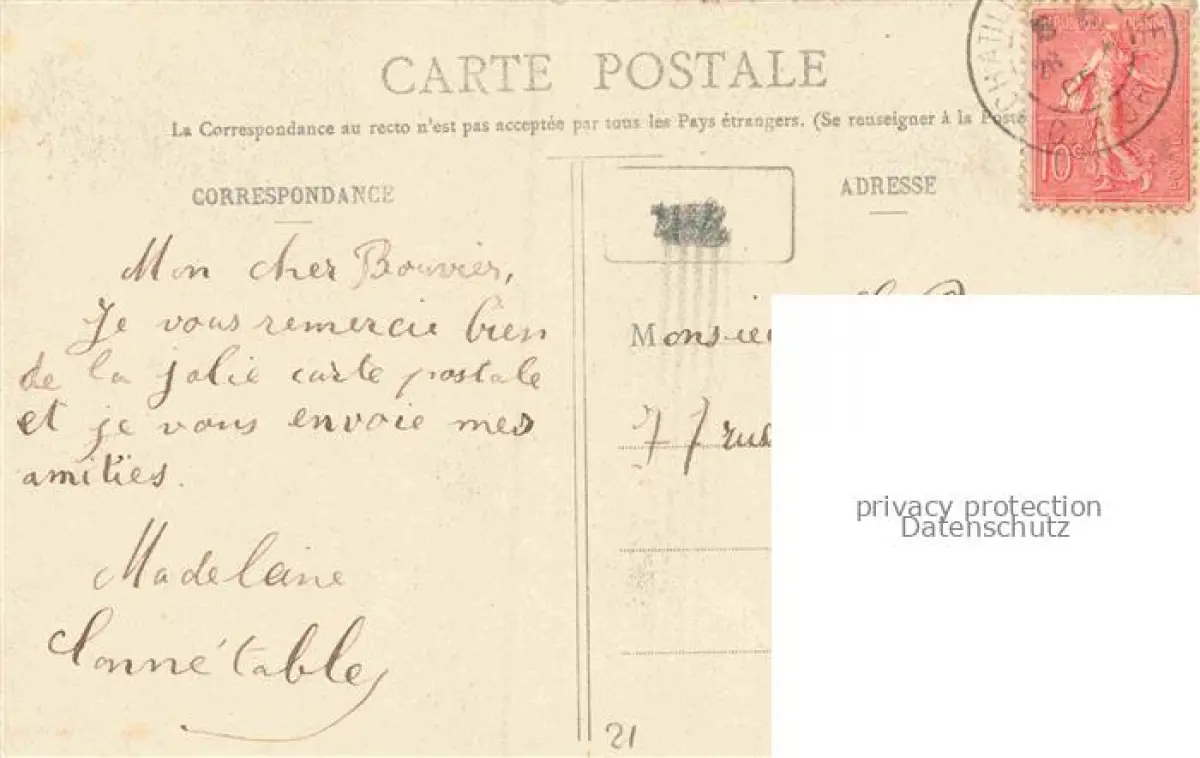 CARTE POSTALE
La Correspondance au recto n'est pas acceptée par tous les Pays étrangers. (Se renseigner à la Poste
CORRESPONDANCE
Mon cher Bouvier,
Je vous remercie bien
de la jolie carte postale
et je vous envoie mes
amitiés.
Madelaine
Connétable
ADRESSE
Monsieu
77 rue
privacy protection
Datenschutz
21
10c